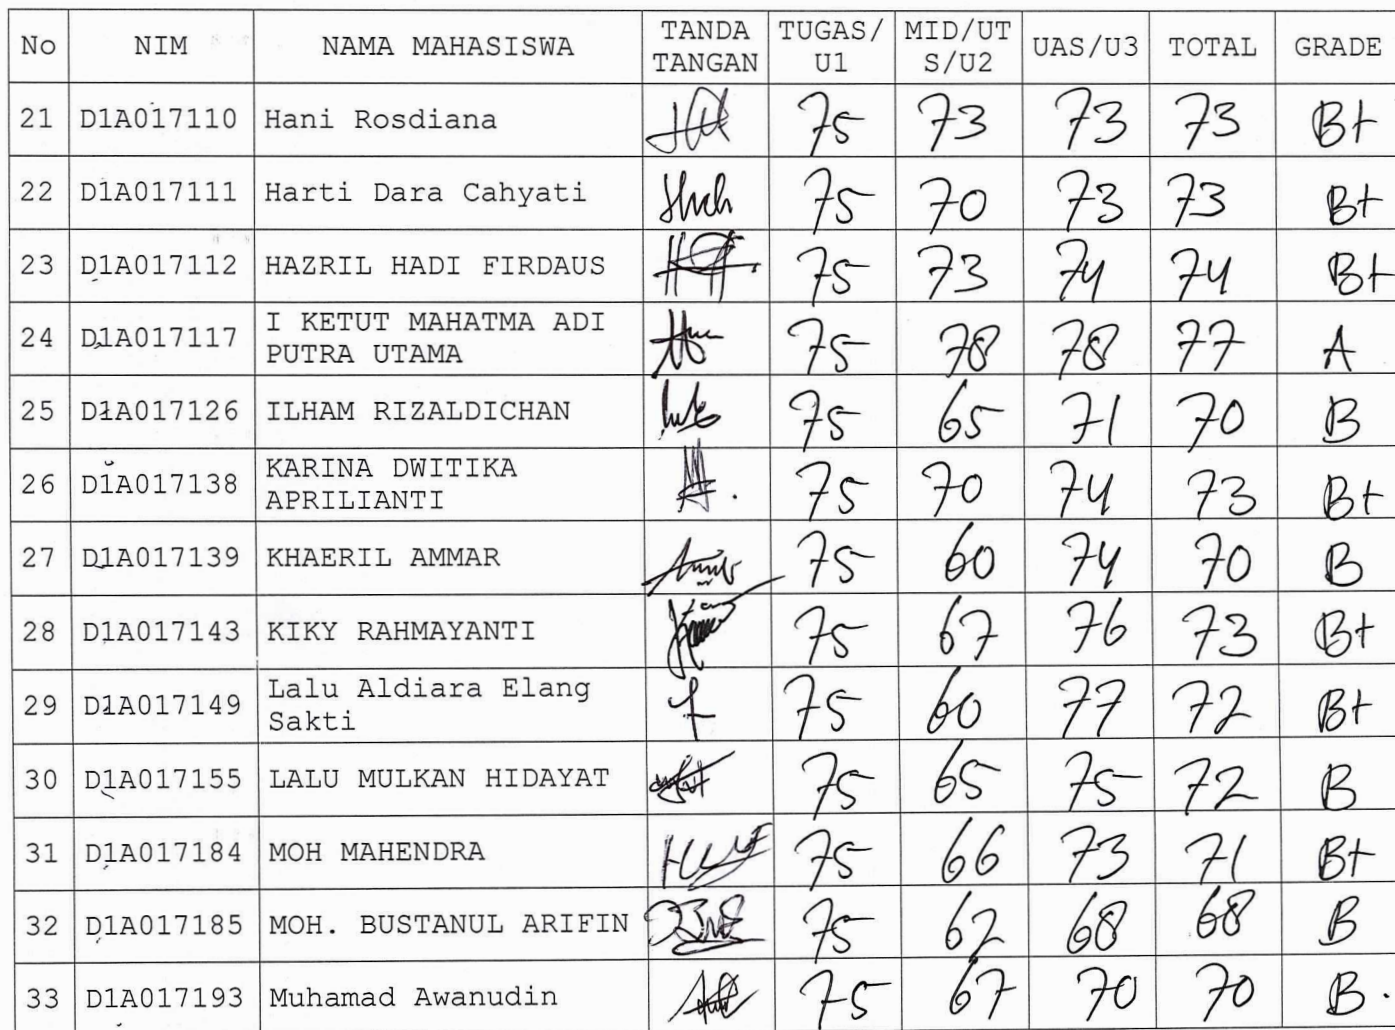 No NIM NAMA MAHASISWA TANDA TANGAN TUGAS/U1 MID/UTS/U2 UAS/U3 TOTAL GRADE
21 D1A017110 Hani Rosdiana 75 73 73 73 B+
22 D1A017111 Harti Dara Cahyati 75 70 73 73 B+
23 D1A017112 HAZRIL HADI FIRDAUS 75 73 74 74 B+
24 D1A017117 I KETUT MAHATMA ADI PUTRA UTAMA 75 78 78 77 A
25 D1A017126 ILHAM RIZALDICHAN 75 65 71 70 B
26 D1A017138 KARINA DWITIKA APRILIANTI 75 70 74 73 B+
27 D1A017139 KHAERIL AMMAR 75 60 74 70 B
28 D1A017143 KIKY RAHMAYANTI 75 67 76 73 B+
29 D1A017149 Lalu Aldiara Elang Sakti 75 60 77 72 B+
30 D1A017155 LALU MULKAN HIDAYAT 75 65 75 72 B
31 D1A017184 MOH MAHENDRA 75 66 73 71 B+
32 D1A017185 MOH. BUSTANUL ARIFIN 75 62 68 68 B
33 D1A017193 Muhamad Awanudin 75 67 70 70 B.